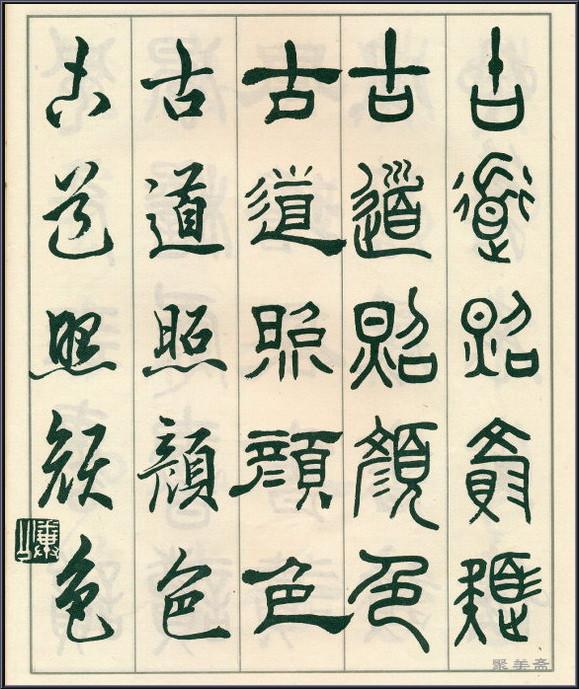 古道照顏色
古道照顏色
古道照顏色
古道照顏色
古道照顏色
聚美斋